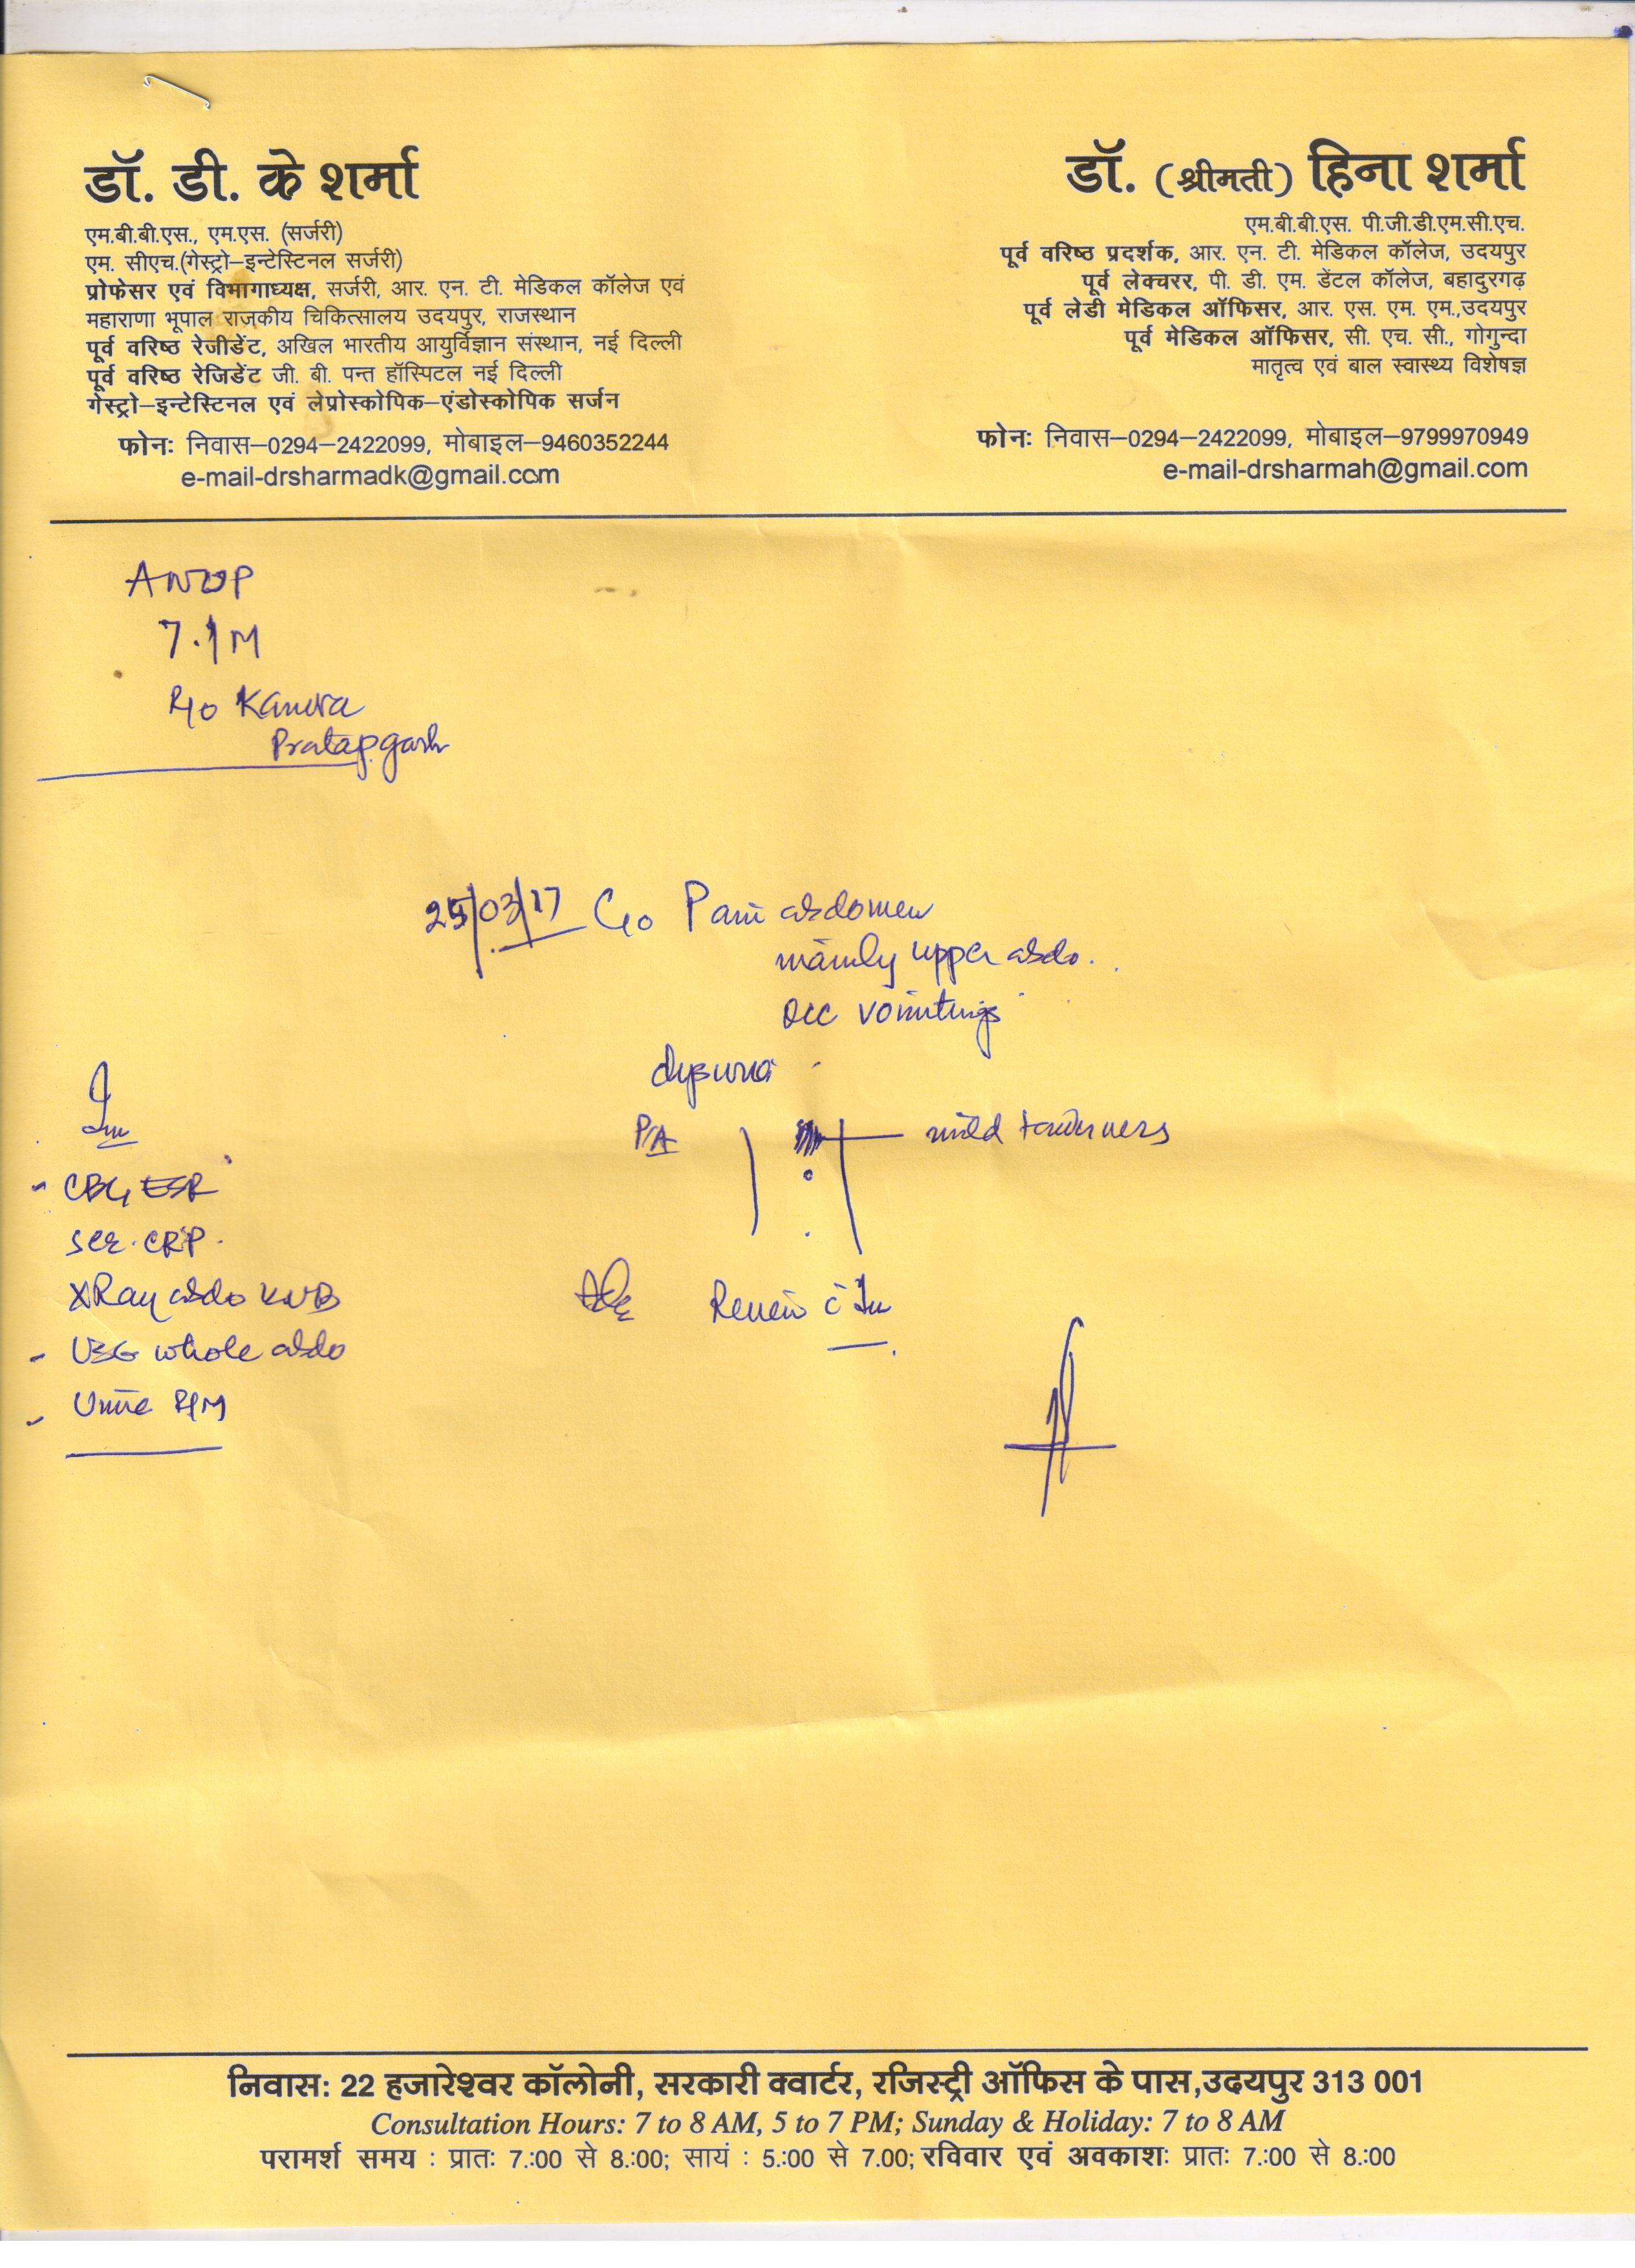 डॉ. डी. के शर्मा
एम.बी.बी.एस., एम.एस. (सर्जरी)
एम. सीएच.(गेस्ट्रो–इन्टेस्टिनल सर्जरी)
प्रोफेसर एवं विभागाध्यक्ष, सर्जरी, आर. एन. टी. मेडिकल कॉलेज एवं
महाराणा भूपाल राजकीय चिकित्सालय उदयपुर, राजस्थान
पूर्व वरिष्ठ रेजीडेंट, अखिल भारतीय आयुर्विज्ञान संस्थान, नई दिल्ली
पूर्व वरिष्ठ रेजिडेंट जी. बी. पन्त हॉस्पिटल नई दिल्ली
गेस्ट्रो–इन्टेस्टिनल एवं लेप्रोस्कोपिक–एंडोस्कोपिक सर्जन
फोनः निवास–0294–2422099, मोबाइल–9460352244
e-mail-drsharmadk@gmail.com
डॉ. (श्रीमती) हिना शर्मा
एम.बी.बी.एस. पी.जी.डी.एम.सी.एच.
पूर्व वरिष्ठ प्रदर्शक, आर. एन. टी. मेडिकल कॉलेज, उदयपुर
पूर्व लेक्चरर, पी. डी. एम. डेंटल कॉलेज, बहादुरगढ़
पूर्व लेडी मेडिकल ऑफिसर, आर. एस. एम. एम.,उदयपुर
पूर्व मेडिकल ऑफिसर, सी. एच. सी., गोगुन्दा
मातृत्व एवं बाल स्वास्थ्य विशेषज्ञ
फोनः निवास–0294–2422099, मोबाइल–9799970949
e-mail-drsharmah@gmail.com
ANOP
R/o
Pratapgarh
25/03/17 C/o Pain abdomen
mainly upper abdo.
occ vomitings
dysuria
P/A mild tenderness
Inv
- CBC, ESR
Ser. CRP.
X Ray abdo KUB
- USG whole abdo
- Urine R/M
Adv Review c̄ Inv
निवास: 22 हजारेश्वर कॉलोनी, सरकारी क्वार्टर, रजिस्ट्री ऑफिस के पास,उदयपुर 313 001
Consultation Hours: 7 to 8 AM, 5 to 7 PM; Sunday & Holiday: 7 to 8 AM
परामर्श समय : प्रातः 7.:00 से 8.:00; सायं : 5.:00 से 7.00; रविवार एवं अवकाशः प्रातः 7.:00 से 8.:00